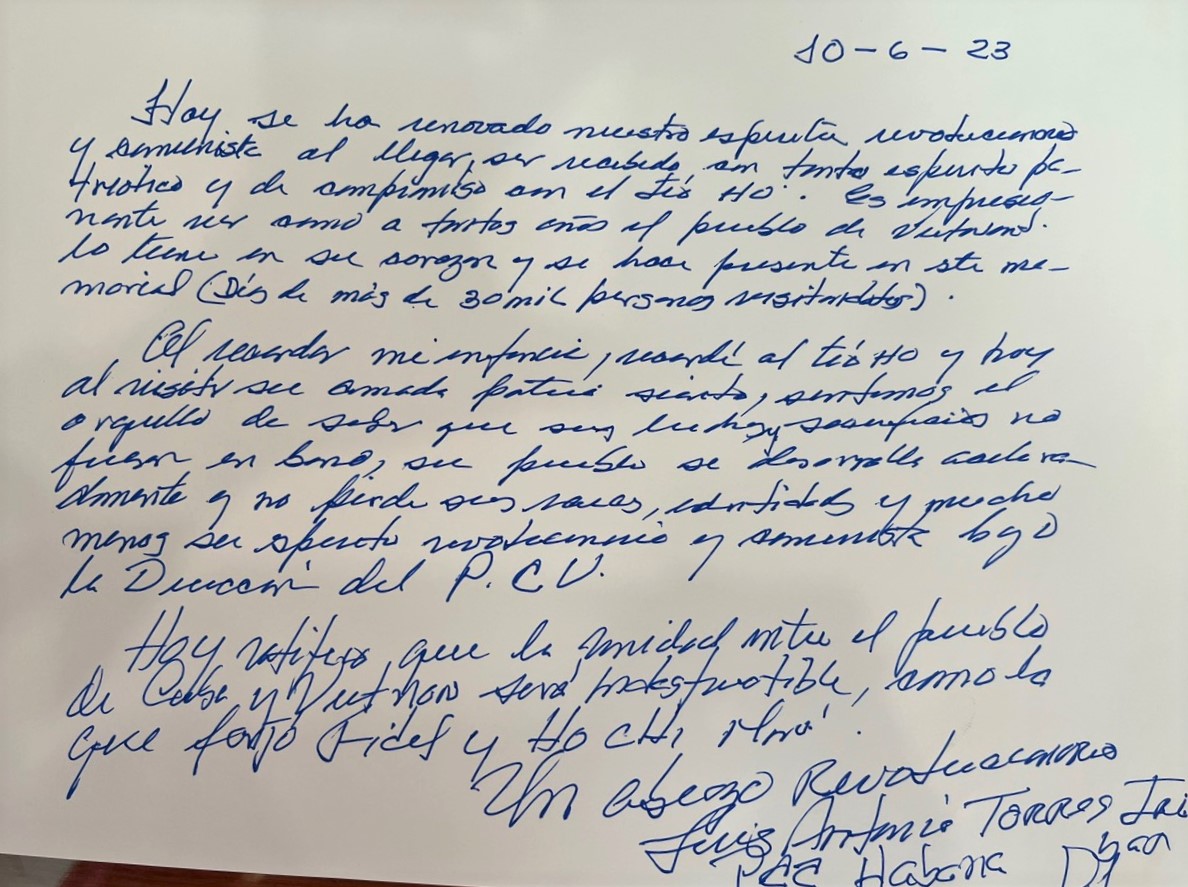 10-6-23
Hoy se ha renovado nuestro espiritu revolucionario
y comunista al llegar, ser recibido, con tanto espirito pa-
triotico y de compromiso con el tio HO. Es impresio-
nante ver como a tantos años el pueblo de Vietnam
lo tiene en su corazon y se hace presente en este me-
morial (Días de más de 30 mil personas).
Al recordar mi infancia, recordé al tío HO y hoy
al visitar su amada patria siento, sentimos el
orgullo de saber que sus luchas y sacrificios no
fueron en bano, su pueblo se desarrolla acelera-
damente y no pierde sus raices, identidad y mucho
menos su espirito revolucionario y comunista bajo
la Dirección del P.C.V.
Hoy ratifico que la unidad entre el pueblo
de Cuba y Vietnam será indestructible, como la
que forjo Fidel y Ho CHi Min.
Un abrazo Revolucionario
Luis Antonio TORRES Iri
bar
PCC Habana